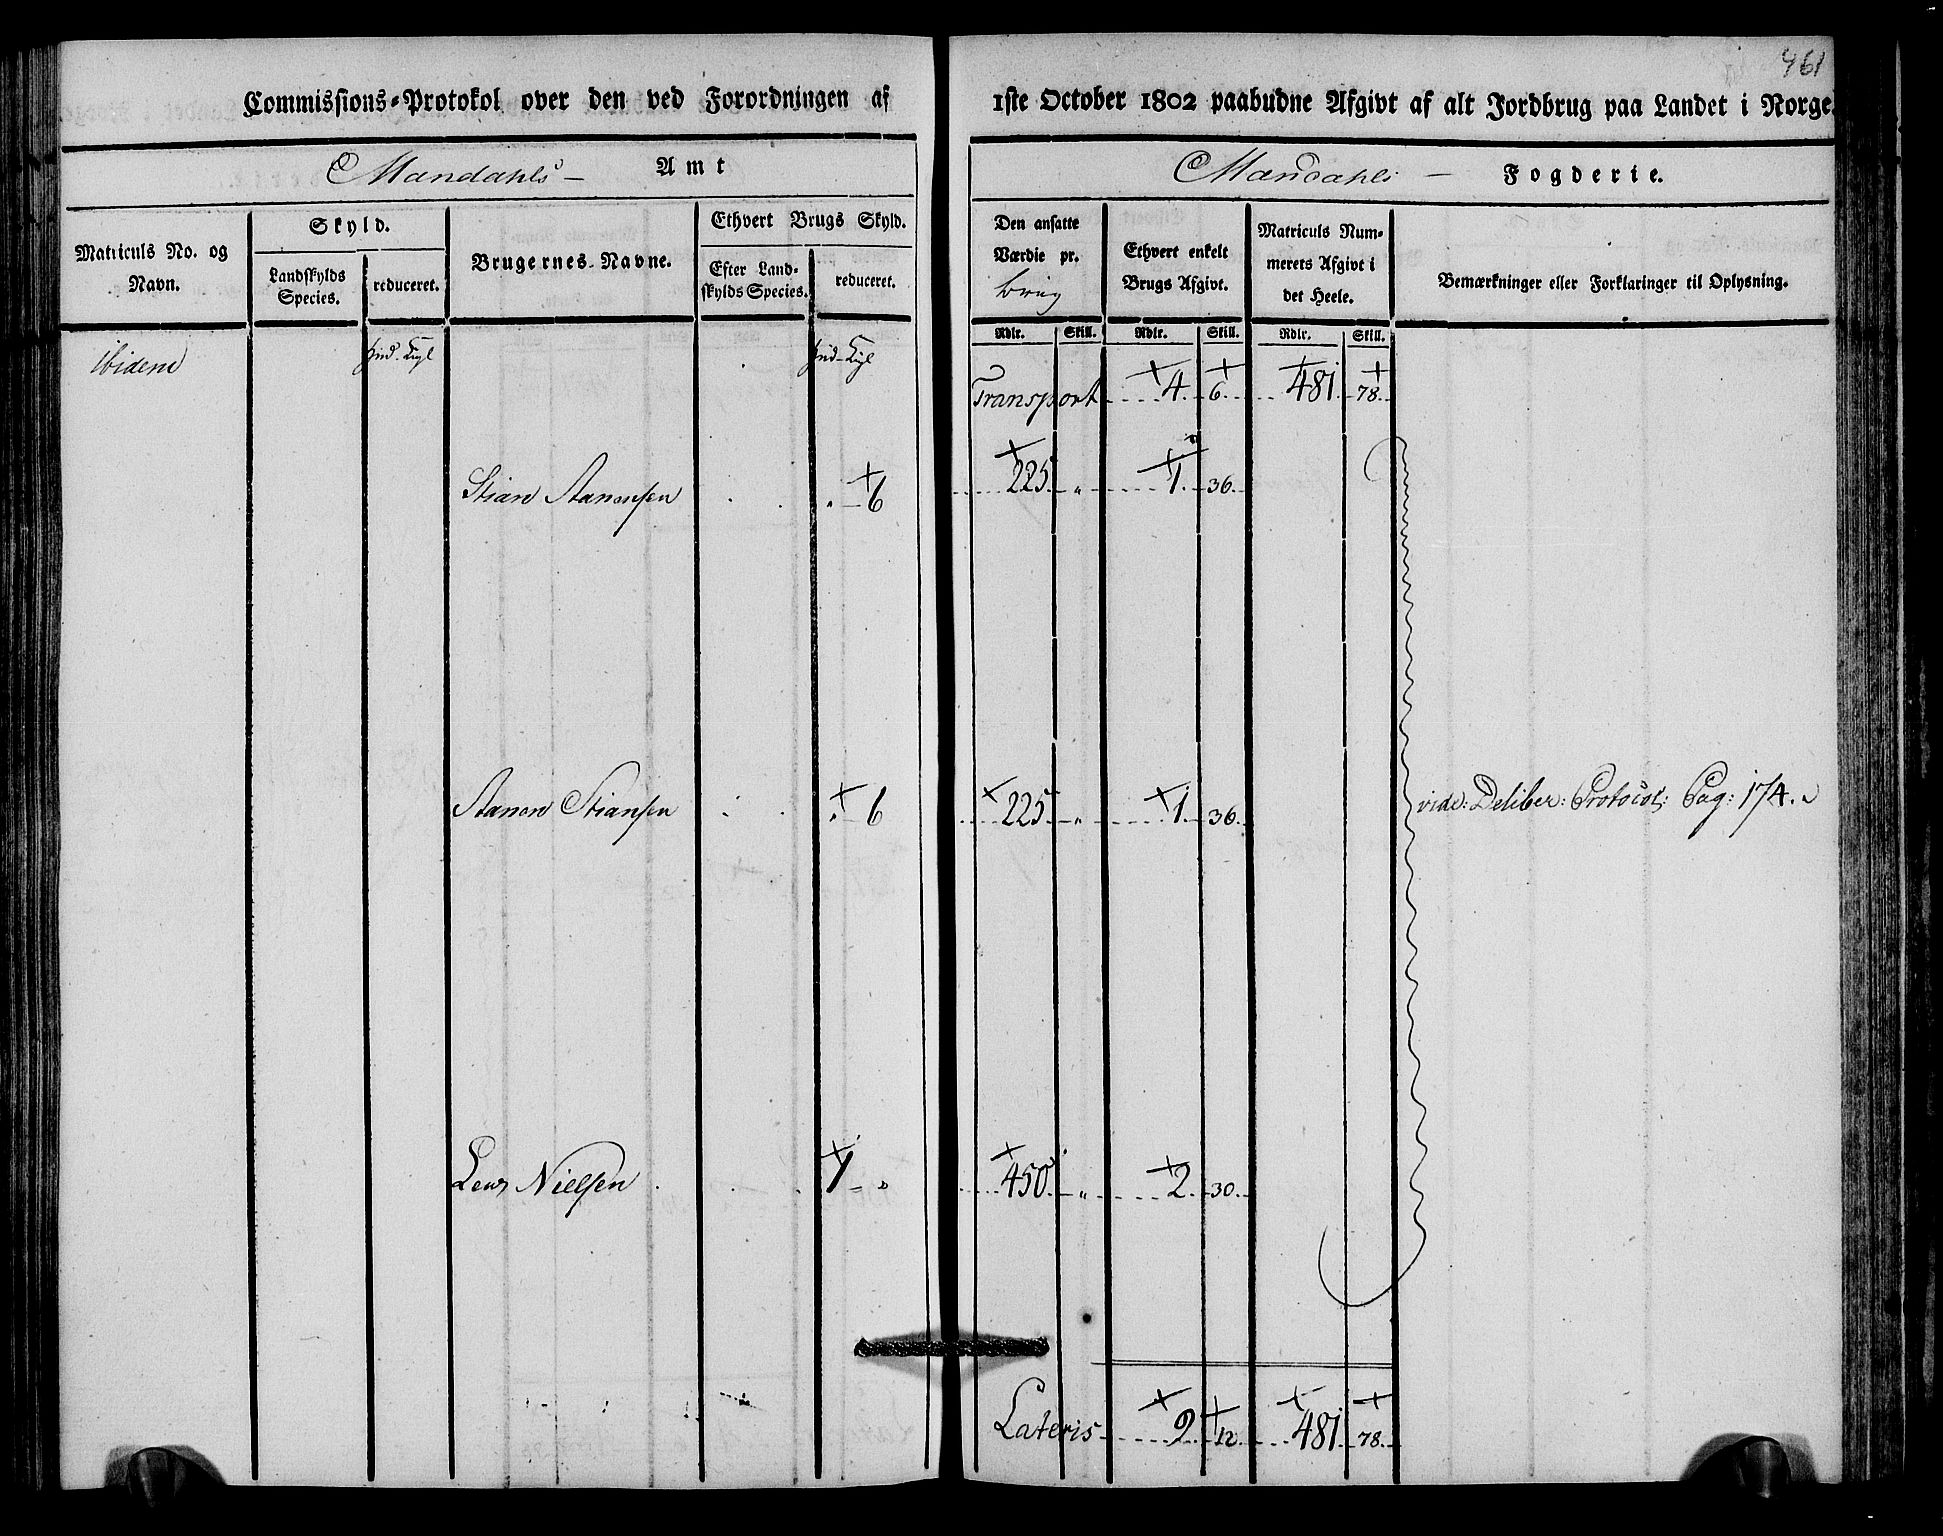 461
Commissions-Protokol over den ved Forordningen af 1ste October 1802 paabudne Afgivt af alt Jordbrug paa Landet i Norge.
Mandahls — Amt
Mandahls — Fogderie.
Matriculs No. og Navn.
Skyld.
Landskylds Species.
reduceret.
Brugernes Navne.
Ethvert Brugs Skyld.
Efter Landskylds Species.
reduceret.
Den ansatte Værdie pr. brug
Ethvert enkelt Brugs Afgivt.
Matriculs Nummerets Afgivt i det Heele.
Bemærkninger eller Forklaringer til Oplysning.
Rdlr. Skill. Rdlr. Skill. Rdlr. Skill.
ibidem
Transport 4 6 481 78
Stian 6 225 „ 1 36
Stiansen 6 225 „ 1 36 vide: Deliber: Protocol: Pag: 174.
Nielsen 1 „ 450 „ 2 30
Lateris 9 12 481 78